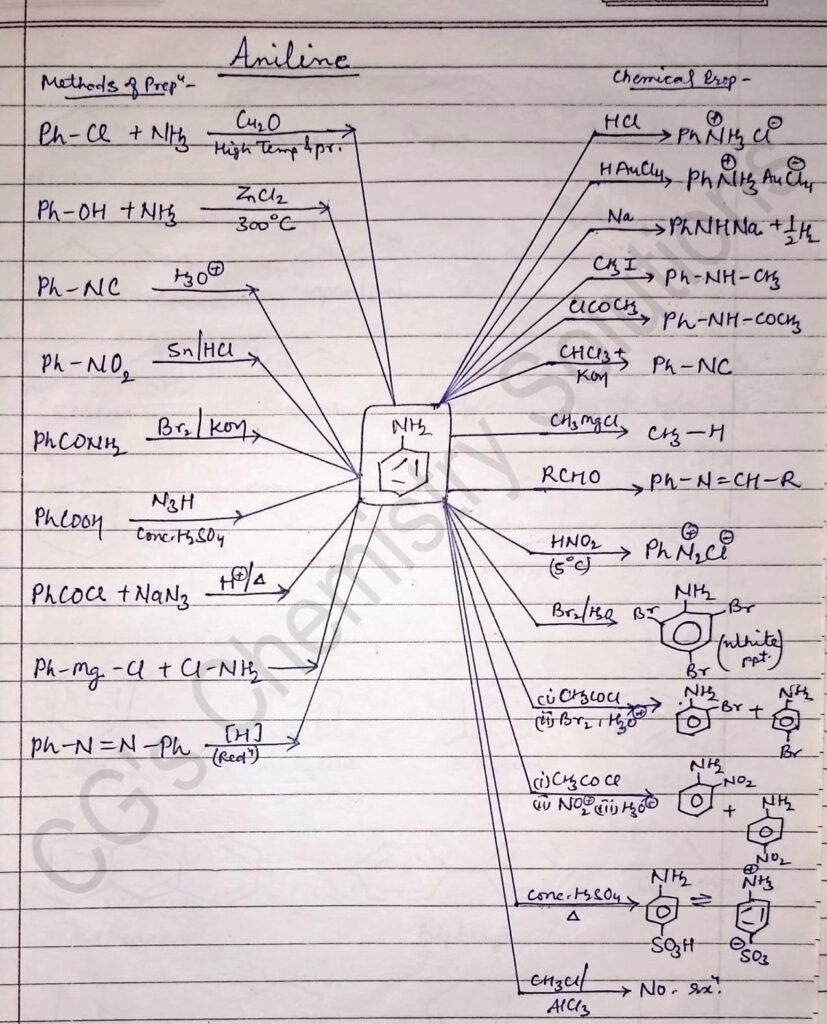 Aniline
Methods of Prepⁿ-
Ph-Cl + NH₃ Cu₂O High Temp & pr.
Ph-OH + NH₃ ZnCl₂ 300°C
Ph-NC H₃O⊕
Ph-NO₂ Sn/HCl
PhCONH₂ Br₂/KOH
PhCOOH N₃H Conc. H₂SO₄
PhCOCl + NaN₃ H⊕/Δ
Ph-Mg-Cl + Cl-NH₂
Ph-N=N-Ph [H] (Redⁿ)
NH₂
Chemical Prop-
HCl PhN⊕H₃Cl⊖
HAuCl₄ PhN⊕H₃AuCl₄⊖
Na PhNHNa + ½H₂
CH₃I Ph-NH-CH₃
ClCOCH₃ Ph-NH-COCH₃
CHCl₃+ KOH Ph-NC
CH₃MgCl CH₃-H
RCHO Ph-N=CH-R
HNO₂ (5°C) PhN⊕₂Cl⊖
Br₂/H₂O NH₂ Br Br Br (white ppt.)
(i) CH₃COCl (ii) Br₂, H₃O⊕ NH₂ Br + NH₂ Br
(i) CH₃COCl (ii) NO₂⊕ (iii) H₃O⊕ NH₂ NO₂ + NH₂ NO₂
Conc. H₂SO₄ Δ NH₂ SO₃H ⇌ N⊕H₃ SO₃⊖
CH₃Cl/ AlCl₃ No. rxⁿ.
CG's Chemistry Solutions